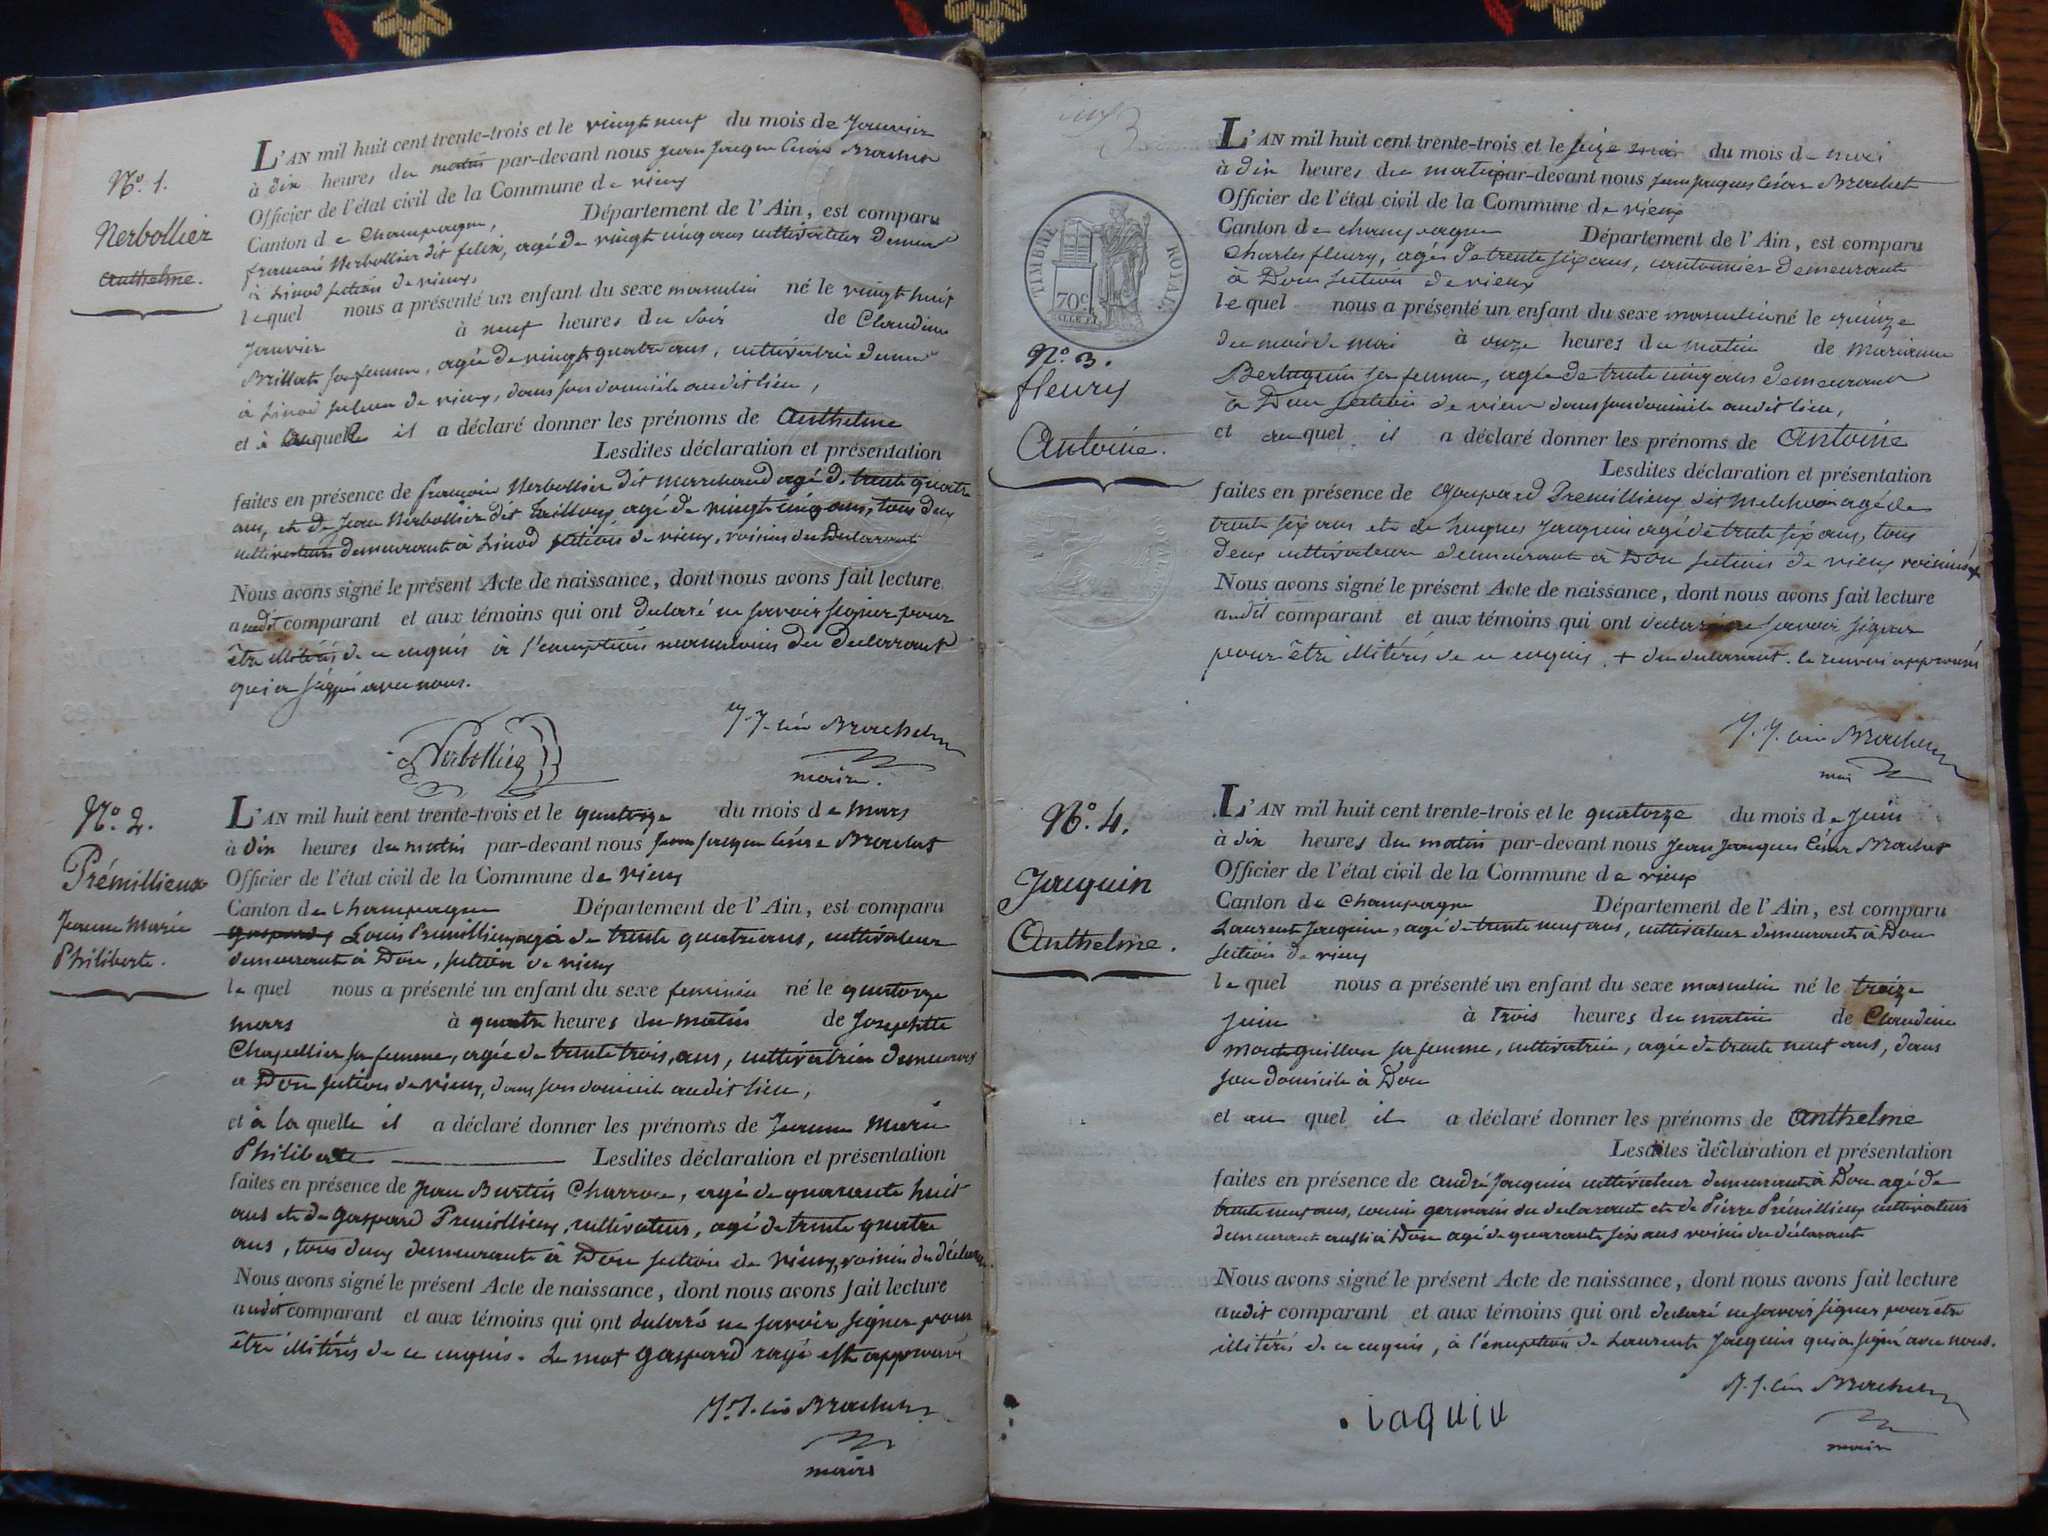 N.º 1.
Nerbollier
Anthelme.
L'AN mil huit cent trente-trois et le vingt neuf du mois de Janvier
à dix heures du matin par-devant nous Jean Jacques César Brachet
Officier de l'état civil de la Commune de vieux
Canton de Champagne, Département de l'Ain, est comparu
françois Nerbollier dit felix, agé de vingt cinq ans cultivateur demeurt
à Linod section de vieux,
lequel nous a présenté un enfant du sexe masculin né le vingt huit
Janvier à neuf heures du soir de Claudine
Brillat sa femme, agée de vingt quatre ans, cultivatrice demeurt
à Linod section de vieux, dans son domicile audit lieu,
et à auquel il a déclaré donner les prénoms de Anthelme
Lesdites déclaration et présentation
faites en présence de françois Nerbollier dit marchand agé de trente quatre
ans, et de Jean Nerbollier dit agé de vingt cinq ans, tous deux
cultivateurs demeurants à Linod section de vieux, voisins du déclarant
Nous avons signé le présent Acte de naissance, dont nous avons fait lecture
audit comparant et aux témoins qui ont déclaré ne savoir signer pour
être illitérés de ce enquis à l'exception néanmoins du déclarant
qui a signé avec nous.
Nerbollier
J. J. César Brachet
maire.
N.º 2.
Prémillieux
Jeanne Marie
Philiberte.
L'AN mil huit cent trente-trois et le quatorze du mois de Mars
à dix heures du matin par-devant nous Jean Jacques César Brachet
Officier de l'état civil de la Commune de vieux
Canton de Champagne Département de l'Ain, est comparu
gaspard Louis Prémillieux agé de trente quatre ans, cultivateur
demeurant à Don, section de vieux
lequel nous a présenté un enfant du sexe feminin né le quatorze
mars à quatre heures du matin de Josephtte
Chapellier sa femme, agée de trente trois, ans, cultivatrice demeurant
à Don section de vieux, dans son domicile audit lieu,
et à la quelle il a déclaré donner les prénoms de Jeanne Marie
Philiberte Lesdites déclaration et présentation
faites en présence de Jean Burtin Charron, agé de quarante huit
ans et de gaspard Prémillieux, cultivateur, agé de trente quatre
ans, tous deux demeurants à Don section de vieux, voisins du déclarant
Nous avons signé le présent Acte de naissance, dont nous avons fait lecture
audit comparant et aux témoins qui ont déclaré ne savoir signer pour
être illitérés de ce enquis. Le mot gaspard rayé est approuvé
J. J. César Brachet
maire
TIMBRE ROYAL
70c
N.º 3.
fleury
Antoine.
L'AN mil huit cent trente-trois et le seize mai du mois de mai
à dix heures du matin par-devant nous Jean Jacques César Brachet
Officier de l'état civil de la Commune de vieux
Canton de Champagne Département de l'Ain, est comparu
Charles fleury, agé de trente six ans, cantonnier demeurant
à Don section de vieux
lequel nous a présenté un enfant du sexe masculin né le quinze
du mois de mai à onze heures du matin de Marianne
Berluquin sa femme, agée de trente cinq ans demeurant
à Don section de vieux dans son domicile audit lieu,
et auquel il a déclaré donner les prénoms de Antoine
Lesdites déclaration et présentation
faites en présence de Gaspard Prémillieux dit agé de
trente six ans et de hugues Jacquin agé de trente six ans, tous
deux cultivateurs demeurants à Don section de vieux voisins +
Nous avons signé le présent Acte de naissance, dont nous avons fait lecture
audit comparant et aux témoins qui ont déclaré ne savoir signer
pour être illitérés de ce enquis. + du déclarant. le renvoi approuvé
J. J. César Brachet
N.º 4.
Jacquin
Anthelme.
L'AN mil huit cent trente-trois et le quatorze du mois de Juin
à dix heures du matin par-devant nous Jean Jacques César Brachet
Officier de l'état civil de la Commune de vieux
Canton de Champagne Département de l'Ain, est comparu
Laurent Jacquin, agé de trente neuf ans, cultivateur demeurant à Don
section de vieux
lequel nous a présenté un enfant du sexe masculin né le treize
Juin à Trois heures du matin de Claudine
sa femme, cultivatrice, agée de trente neuf ans, dans
son domicile à Don
et au quel il a déclaré donner les prénoms de Anthelme
Lesdites déclaration et présentation
faites en présence de andré Jacquin cultivateur demeurant à Don agé de
trente neuf ans, cousin germain du déclarant et de Pierre Prémillieux cultivateur
demeurant aussi à Don agé de quarante six ans voisin du déclarant
Nous avons signé le présent Acte de naissance, dont nous avons fait lecture
audit comparant et aux témoins qui ont déclaré ne savoir signer pour être
illitérés de ce enquis, à l'exception de Laurent Jacquin qui a signé avec nous.
J. J. César Brachet
maire
iaquin